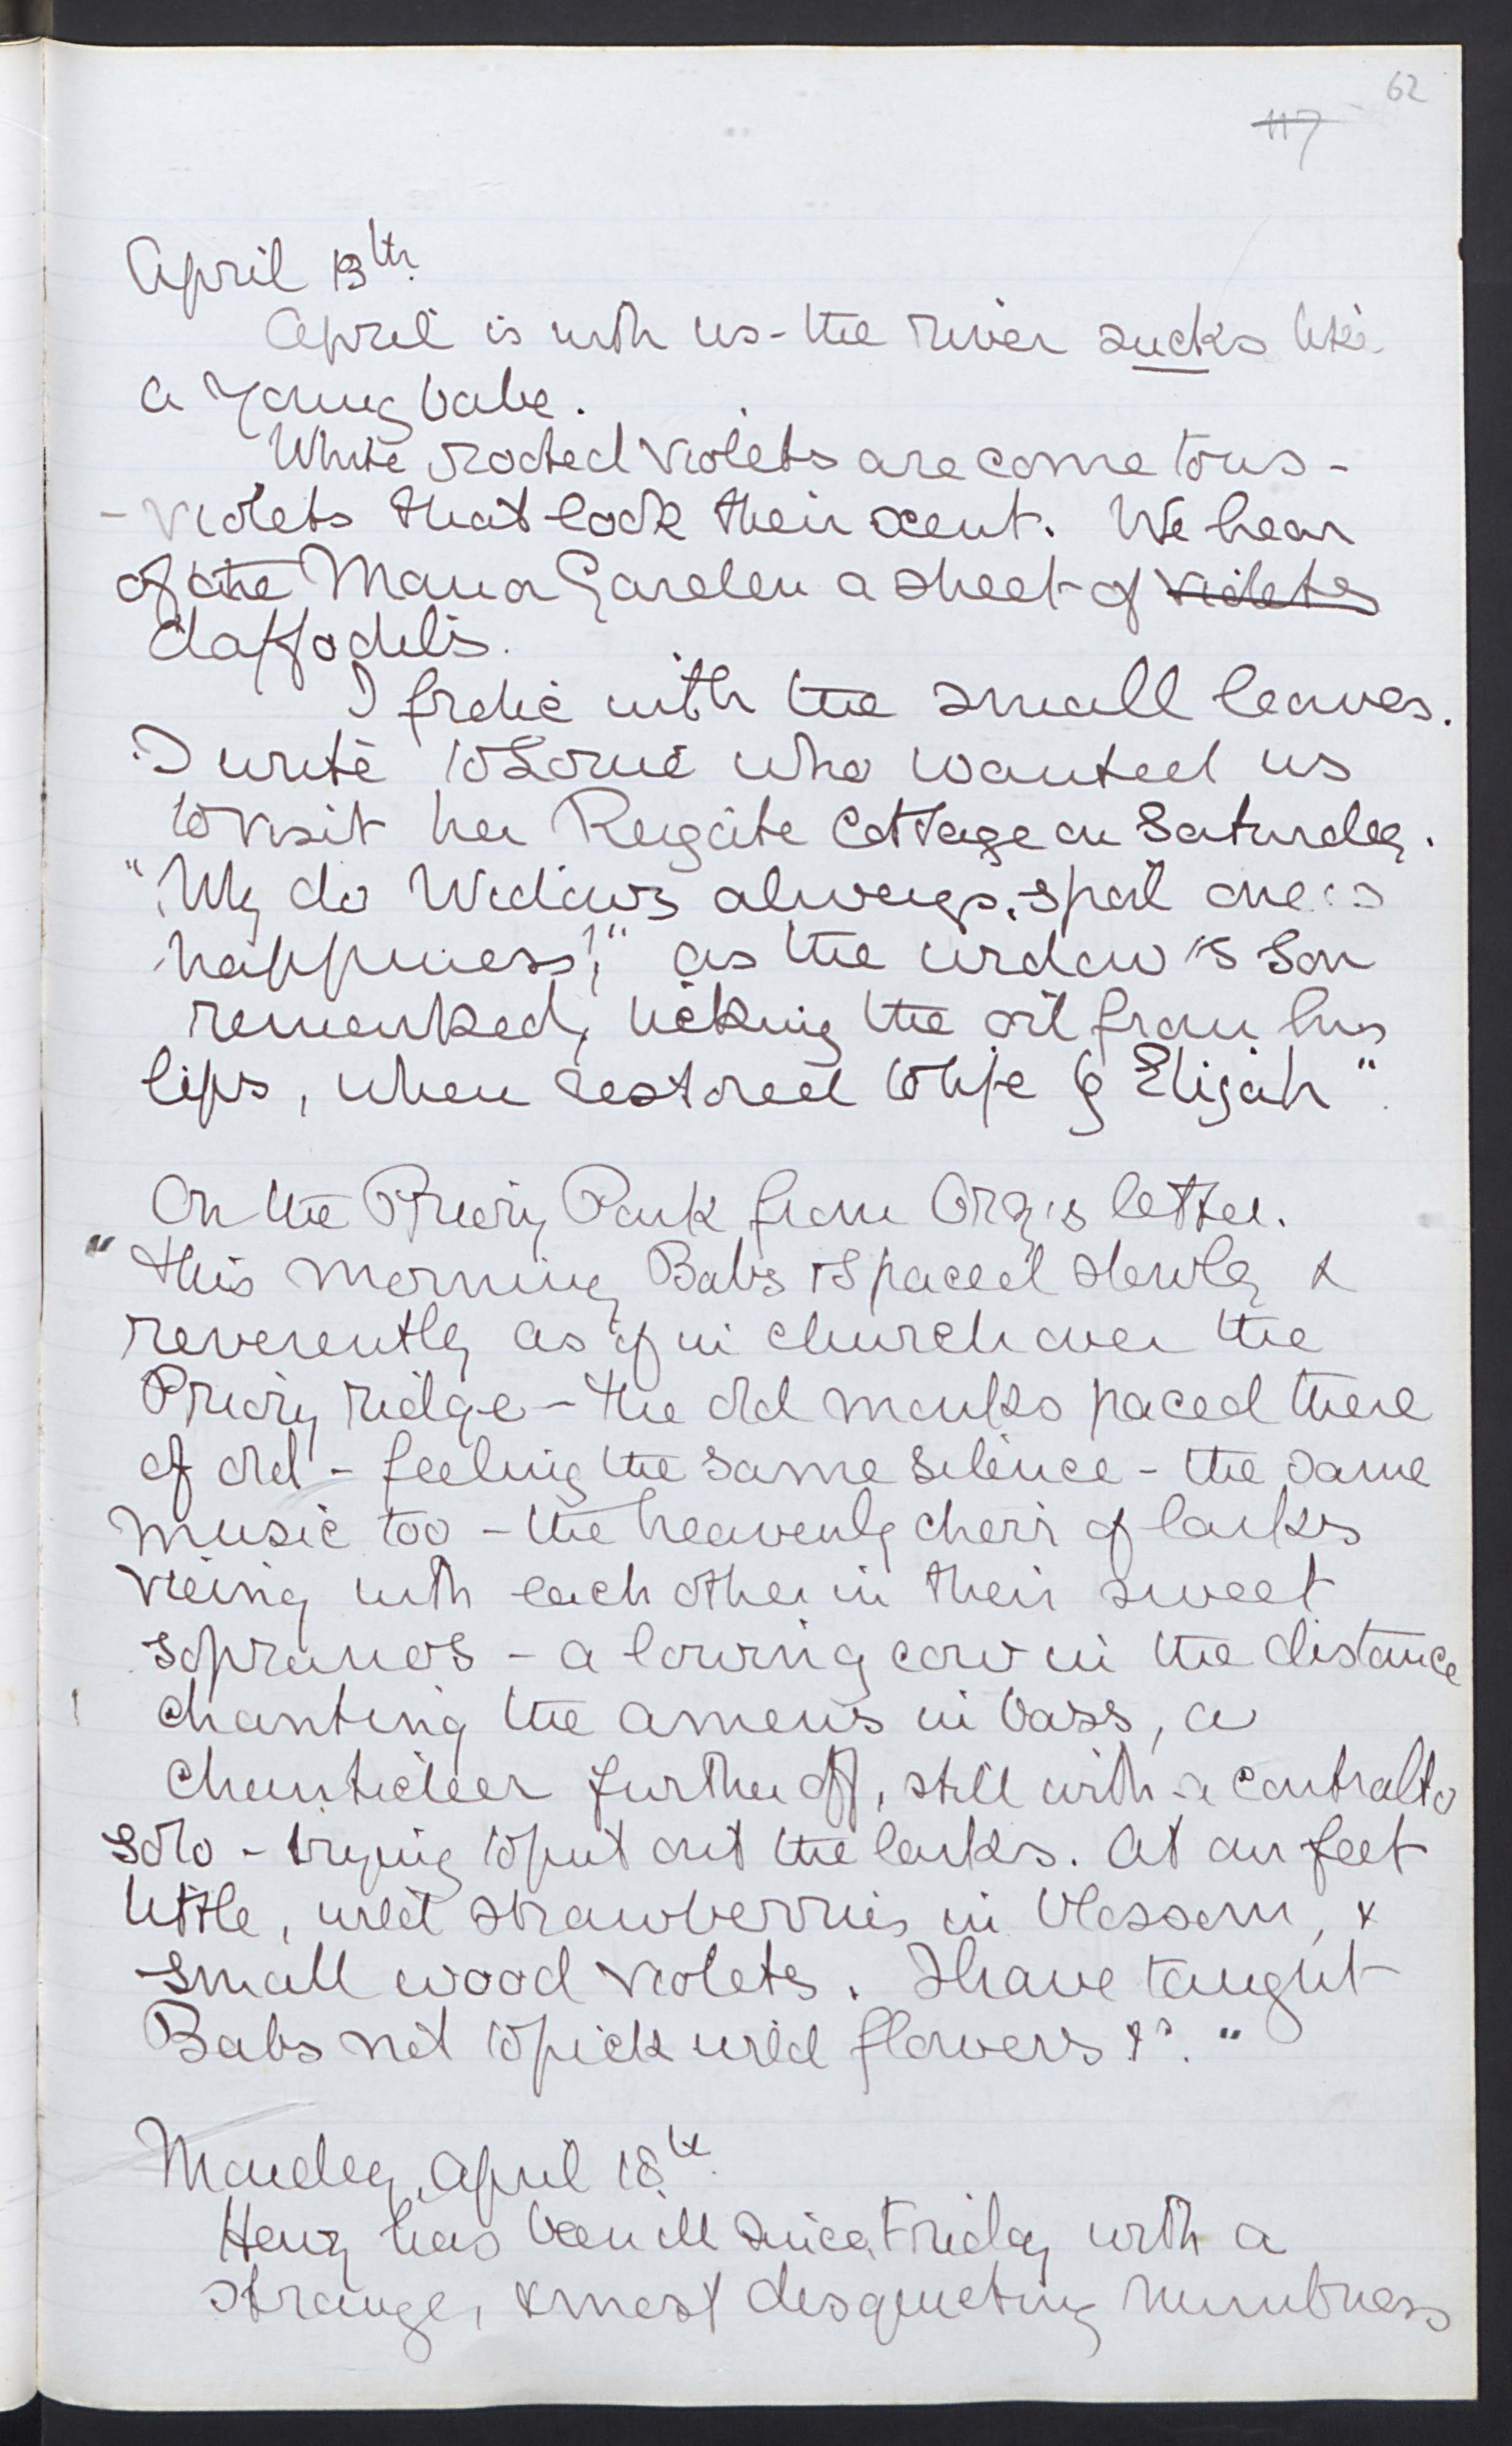 62
117
April 13th.
April is with us - the river sucks like
a young babe.
White, rooted violets are come to us -
- violets that lock their scent. We hear
of the Manor Garden a sheet of violets
daffodils.
I frolic with the small leaves.
I write to Louie who wanted us
to visit her Reigate Cottage on Saturday.
"Why do Widows always spoil one's
happiness?" as the widow's Son
remarked, licking the oil from his
lips, when restored to life by Elijah".
On the Priory Park from Org's letter.
"This morning Babs & I paced slowly &
reverently as if in church over the
Priory ridge - the old monks paced there
of old - feeling the same silence - the same
music too - the heavenly choir of larks
vieing with each other in their sweet
sopranos - a lowing cow in the distance
chanting the amens in bass, a
chanticleer further off, still with a contralto
solo - trying to put out the larks. At our feet
little, wild strawberries in blossom, &
small wood violets. I have taught
Babs not to pick wild flowers &c."
Monday, April 18th.
Henry has been ill since Friday with a
strange, & most disquieting numbness